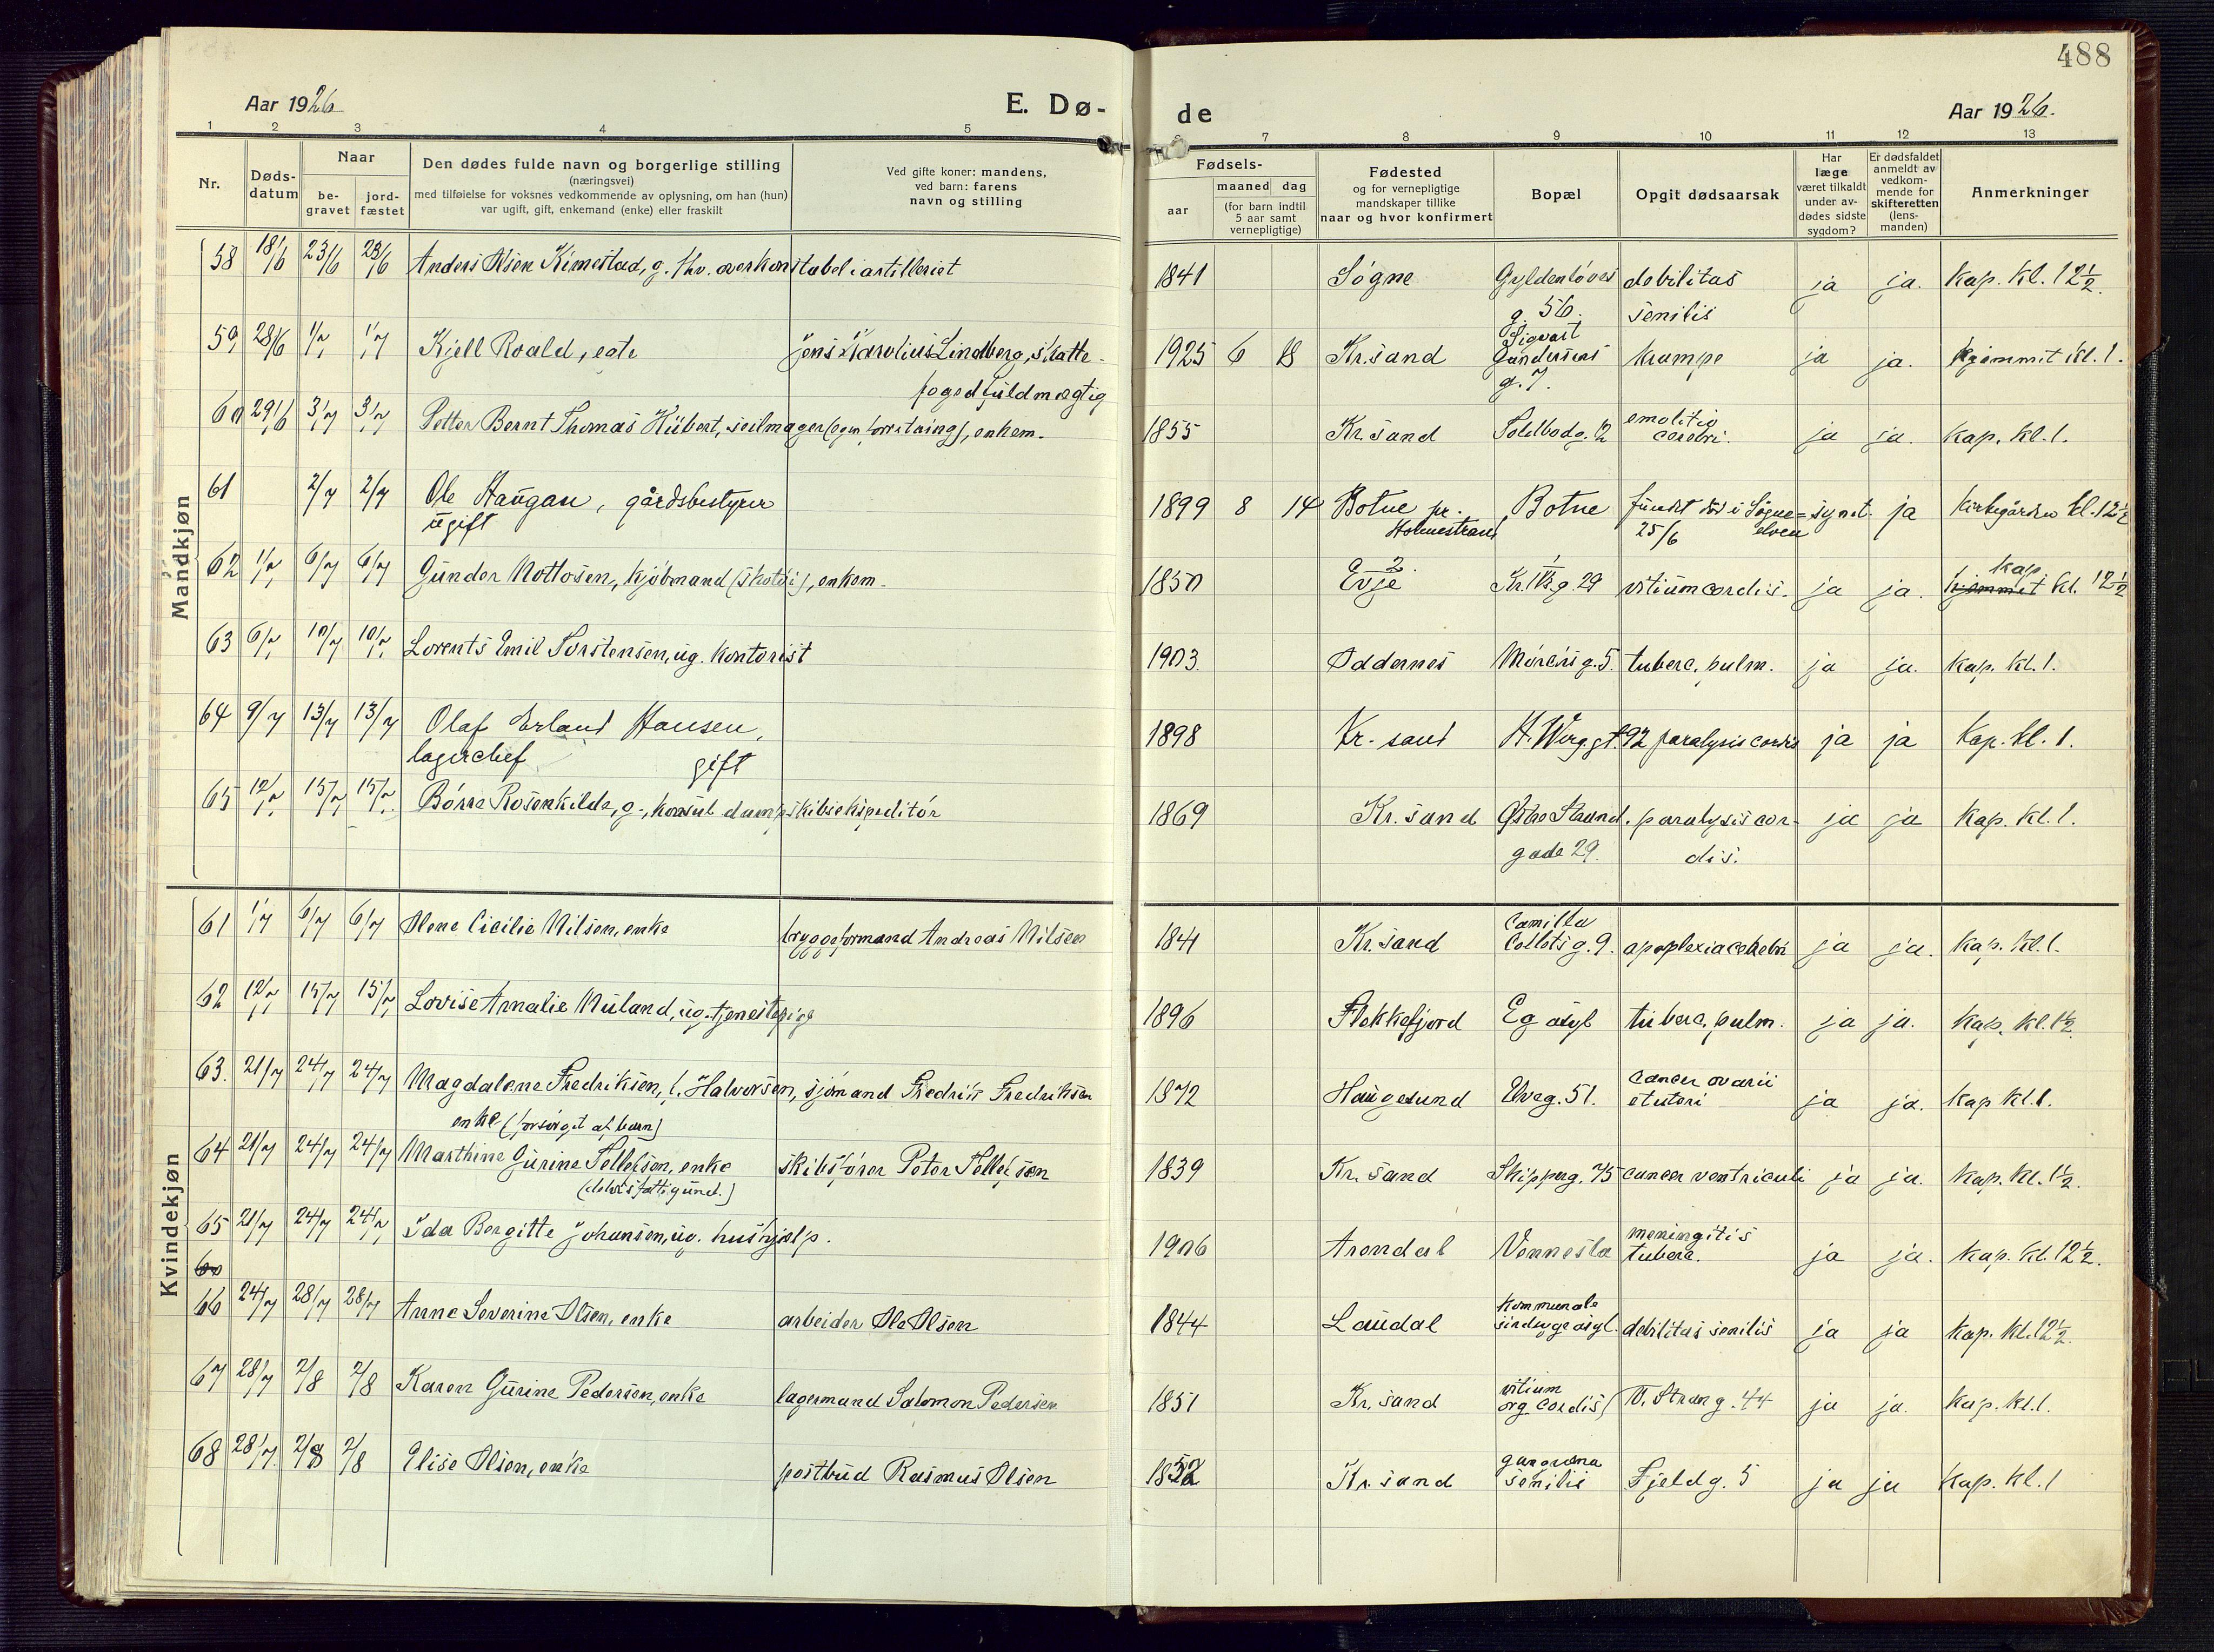 488
Aar 1926
E. Dø-
de
Aar 1926.
1 2 3 4 5
7 8 9 10 11 12 13
Nr.
Døds-
datum
Naar
be-
gravet
jord-
fæstet
Den dødes fulde navn og borgerlige stilling
(næringsvei)
med tilføielse for voksnes vedkommende av oplysning, om han (hun)
var ugift, gift, enkemand (enke) eller fraskilt
Ved gifte koner: mandens,
ved barn: farens
navn og stilling
Fødsels-
aar
maaned dag
(for barn indtil
5 aar samt
vernepligtige)
Fødested
og for vernepligtige
mandskaper tillike
naar og hvor konfirmert
Bopæl
Opgit dødsaarsak
Har
læge
været tilkaldt
under av-
dødes sidste
sygdom?
Er dødsfaldet
anmeldt av
vedkom-
mende for
skifteretten
(lens-
manden)
Anmerkninger
Mandkjøn
58 18/6 23/6 23/6 Anders Olsen Kimestad, g. fhv. overkonstabel i artilleriet 1841 Søgne Gyldenløves debilitas ja ja. Kap. kl. 12½.
g. 56. senilis
59, 28/6 1/7 1/7 Kjell Roald, egte Jens Karolius Lindberg, skatte- 1925 6 18 Kr.sand Sigvart
Gundersens krampe ja ja. hjemmet kl. 1.
fogedfuldmægtig g. 7.
60 29/6 3/7 3/7 Petter Bernt Thomas Hübert, seilmager (egen forretning), enkem. 1855 Kr.sand Toldbodg. 12 emolitio ja ja. Kap. kl. 1.
cerebri.
61 2/7 2/7 Ole Haugan, gårdsbestyrer 1899 8 14 Botne pr. Botne fundet død i Søgne- synet. ja Kirkegården kl. 12½
ugift Holmestrand 25/6 elven
62 1/7 6/7 6/7 Gunder Mottosen, kjøbmand (skotøi), enkem. 1850 Evje Kr.IV.g. 29 vitium cordis. ja ja. hjemmet kap kl. 12½
63 6/7 10/7 10/7 Lorents Emil Torstensen, ug. kontorist 1903. Oddernes g. 5. tuberc. pulm. ja ja. Kap. kl. 1.
64 9/7 13/7 13/7 Olaf Erland Hansen, 1898 Kr.sand H. Werg.gt. 92 paralysis cordis ja ja Kap. kl. 1.
lagerchef gift
65 12/7 15/7 15/7 Børre Rosenkilde, g., konsul dampskibsekspeditør 1869 Kr.sand Østre Strand. paralysis cor- ja ja Kap. kl. 1.
gade 29. dis.
Kvindekjøn
61 1/7 6/7 6/7 Olene Cicilie Nilsen, enke bryggeformand Andreas Nilsen 1841 Kr.sand Camilla
Colletsg. 9. apoplexia cerebri ja ja. Kap. kl. 1.
62 12/7 15/7 15/7 Lovise Amalie Nuland, ug. tjenestepige 1896 Flekkefjord Eg asyl tuberc. pulm. ja ja. Kap. kl. 1½
63. 21/7 24/7 24/7 Magdalene Fredriksen, f. Halvorsen, sjømand Fredrik Fredriksen 1872 Haugesund Elveg. 51. cancer ovarii
et uteri ja ja. Kap kl. 1.
enke (forsørget af barn)
64 21/7 24/7 24/7 Marthine Gurine Tellefsen, enke skibsfører Peter Tellefsen 1839 Kr. sand Skipperg. 75 cancer ventriculi ja ja. Kap. kl. 1½.
(delvis fattigund.)
65 21/7 24/7 24/7 Ida Bergitte Johansen, ug. hushjælp. 1906 Arendal Vennesla meningitis
tuberc. ja ja. Kap. kl. 12½.
66 24/7 28/7 28/7 Anne Severine Olsen, enke arbeider Ole Olsen 1844 Laudal kommunale
sindsygeasyl. debilitas senilis ja ja Kap. kl. 12½.
67 28/7 2/8 2/8 Karen Gurine Pedersen, enke lagermand Salomon Pedersen 1851 Kr.sand vitium
org. cordis V. Strang. 44 ja ja. Kap. kl. 1.
68 28/7 2/8 2/8 Elise Olsen, enke postbud Rasmus Olsen 1852 Kr.sand gangræna
senilis Fjeldg. 5 ja ja Kap. kl. 1